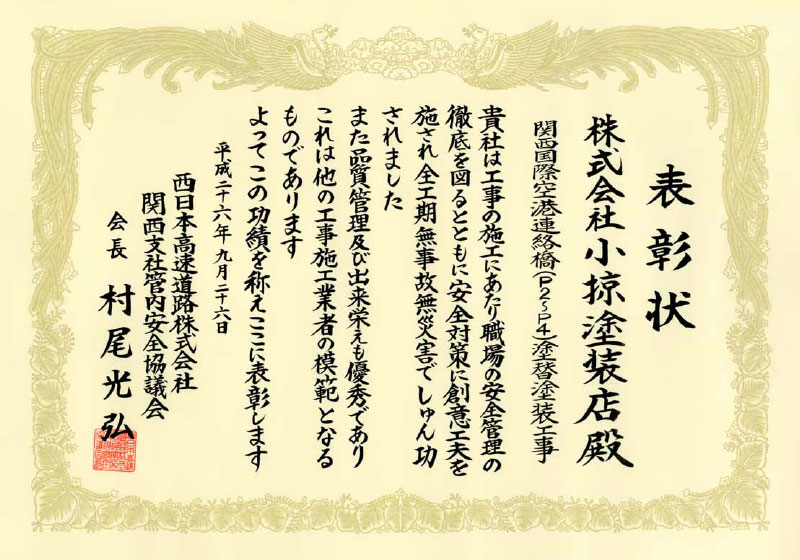 表彰状
株式会社小掠塗装店殿
関西国際空港連絡橋(P2～P4)塗替塗装工事
貴社は工事の施工にあたり職場の安全管理の
徹底を図るとともに安全対策に創意工夫を
施され全工期無事故無災害でしゅん功
されました
また品質管理及び出来栄えも優秀であり
これは他の工事施工業者の模範となる
ものであります
よってこの功績を称えここに表彰します
平成二十六年九月二十六日
西日本高速道路株式会社
関西支社管内安全協議会
会長 村尾光弘